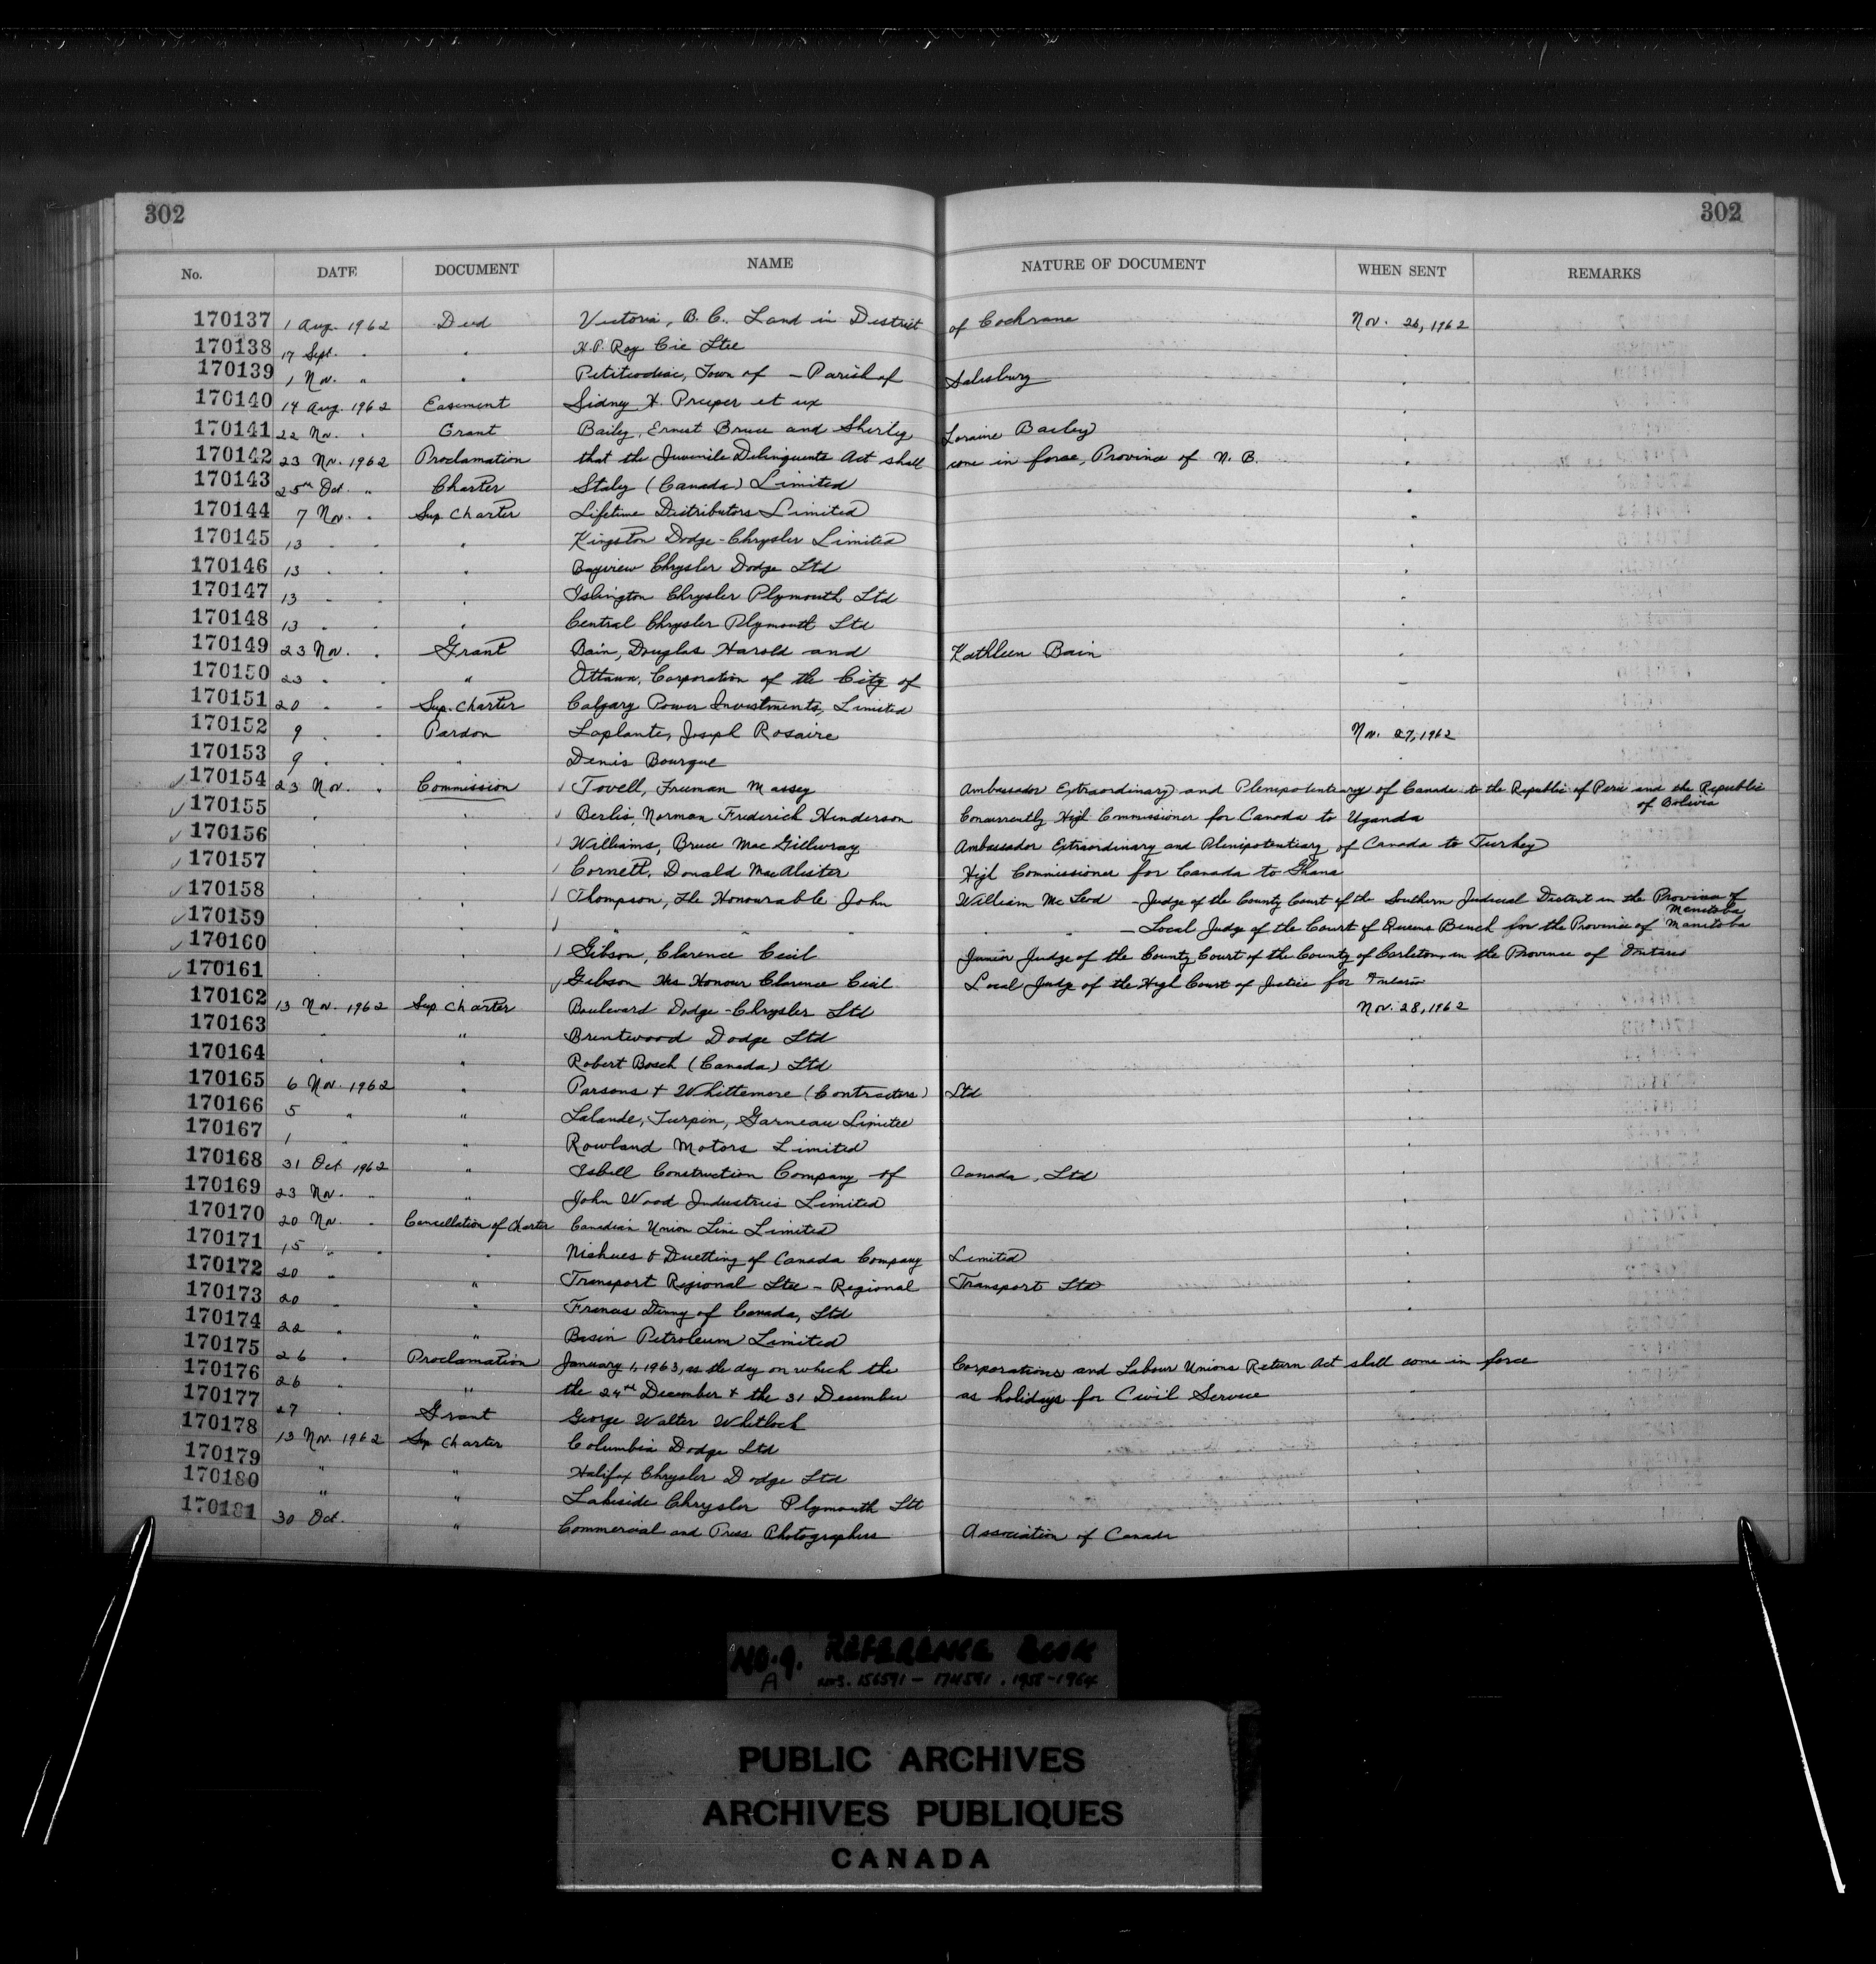 302 302
No. DATE DOCUMENT NAME NATURE OF DOCUMENT WHEN SENT REMARKS
170137 1 Aug. 1962 Deed Victoria, B. C. Land in District of Cochrane Nov. 26, 1962
170138 17 Sept. " " H. P. Roy Cie Ltee "
170139 1 Nov. " " Petitcodiac, Town of — Parish of Salisbury "
170140 14 Aug. 1962 Easement Sidney H. et ux "
170141 22 Nov. " Grant Bailey, Ernest Bruce and Shirley Loraine Bailey "
170142 23 Nov. 1962 Proclamation that the Juvenile Delinquents Act shall come in force, Province of N. B. "
170143 25th Oct. " Charter Staley (Canada) Limited "
170144 7 Nov. " Sup. Charter Lifetime Distributors Limited "
170145 13 " " " Kingston Dodge-Chrysler Limited "
170146 13 " " " Bayview Chrysler Dodge Ltd "
170147 13 " " " Islington Chrysler Plymouth Ltd "
170148 13 " " " Central Chrysler Plymouth Ltd "
170149 23 Nov. " Grant Bain, Douglas Harold and Kathleen Bain "
170150 23 " " " Ottawa, Corporation of the City of "
170151 20 " " Sup. Charter Calgary Power Investments, Limited "
170152 9 " " Pardon Laplante, Joseph Rosaire Nov. 27, 1962
170153 9 " " " Denis Bourque "
✓170154 23 Nov. " Commission ✓ Tovell, Freeman Massey Ambassador Extraordinary and Plenipotentiary of Canada to the Republic of Peru and the Republic
of Bolivia
✓170155 " " ✓ Berlis, Norman Frederich Henderson Concurrently High Commissioner for Canada to Uganda
✓170156 " " ✓ Williams, Bruce MacGillivray Ambassador Extraordinary and Plenipotentiary of Canada to Turkey
✓170157 " " ✓ Cornett, Donald MacAlister High Commissioner for Canada to Ghana
✓170158 " " ✓ Thompson, The Honourable John William McLeod — Judge of the County Court of the Southern Judicial District in the Province of
Manitoba
✓170159 " " ✓ " " " " " — Local Judge of the Court of Queens Bench for the Province of Manitoba
✓170160 " " ✓ Gibson, Clarence Cecil Junior Judge of the County Court of the County of Carleton in the Province of Ontario
✓170161 " " ✓ Gibson His Honour Clarence Cecil Local Judge of the High Court of Justice for Ontario
170162 13 Nov. 1962 Sup. Charter Boulevard Dodge-Chrysler Ltd Nov. 28, 1962
170163 " " Brentwood Dodge Ltd "
170164 " " Robert Bosch (Canada) Ltd "
170165 6 Nov. 1962 " Parsons & Whittemore (Contractors) Ltd "
170166 5 " " Lalande, Turpin, Garneau Limitee "
170167 1 " " Rowland Motors Limited "
170168 31 Oct 1962 " Isbell Construction Company of Canada, Ltd "
170169 23 Nov. " " John Wood Industries Limited "
170170 20 Nov. " Cancellation of Charter Canadian Union Line Limited "
170171 15 " " " Niehues & Duetting of Canada Company Limited "
170172 20 " " Transport Regional Ltee — Regional Transport Ltd "
170173 20 " " Francis Denny of Canada, Ltd "
170174 22 " " Basin Petroleum Limited "
170175 26 " Proclamation January 1, 1963, as the day on which the Corporations and Labour Unions Return Act shall come in force
170176 26 " " the 24th December & the 31 December as holidays for Civil Service "
170177 27 " Grant George Walter Whitlock "
170178 13 Nov. 1962 Sup Charter Columbia Dodge Ltd "
170179 " " Halifax Chrysler Dodge Ltd "
170180 " " Lakeside Chrysler Plymouth Ltd "
170181 30 Oct. " Commercial and Press Photographers Association of Canada "
NO. 9. REFERENCE BOOK
A nos. 156591 — 174591. 1958-1964
PUBLIC ARCHIVES
ARCHIVES PUBLIQUES
CANADA